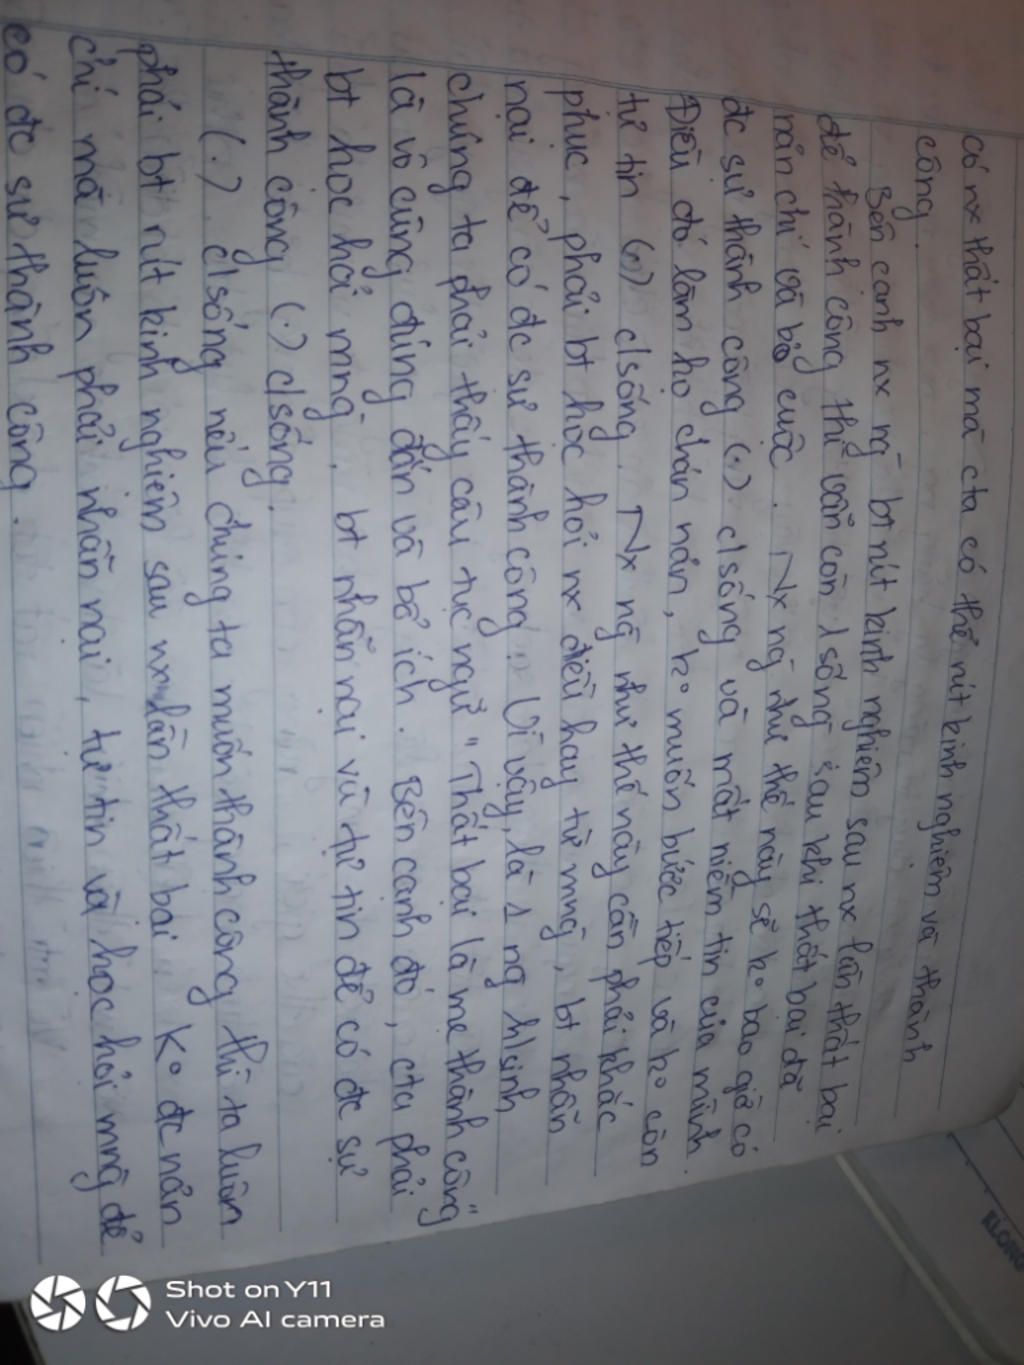 có nx thất bại mà cta có thể rút kinh nghiệm và thành
công.
Bên cạnh nx ng̃ bt rút kinh nghiệm sau nx lần thất bại
để thành công thì vẫn còn 1 số ng̃ sau khi thất bại đã
nản chí và bỏ cuộc. Nx ng̃ như thế này sẽ k° bao giờ có
đc sự thành công (.) c/sống và mất niềm tin của mình.
Điều đó làm họ chán nản, k° muốn bước tiếp và k° còn
tự tin (.) c/sống. Nx ng̃ như thế này cần phải khắc
phục, phải bt học hỏi nx điều hay từ mng̃, bt nhẫn
nại để có đc sự thành công. Vì vậy, là 1 ng h/sinh,
chúng ta phải thấy câu tục ngữ "Thất bại là mẹ thành công"
là vô cùng đúng đắn và bổ ích. Bên cạnh đó, cta phải
bt học hỏi mng̃, bt nhẫn nại và tự tin để có đc sự
thành công (.) c/sống.
(.) c/sống nếu chúng ta muốn thành công thì ta luôn
phải bt rút kinh nghiệm sau nx lần thất bại k° đc nản
chí mà luôn phải nhẫn nại, tự tin và học hỏi mng̃ để
có đc sự thành công.
KLONG
Shot on Y11
Vivo AI camera